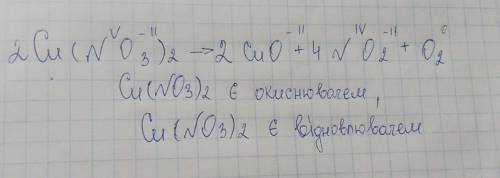 2Cu(N^V O^-II ₃)₂ → 2CuO^-II + 4N^IV O^-II ₂ + O₂^0
Cu(NO3)2 є окиснювачем,
Cu(NO3)2 є відновлювачем